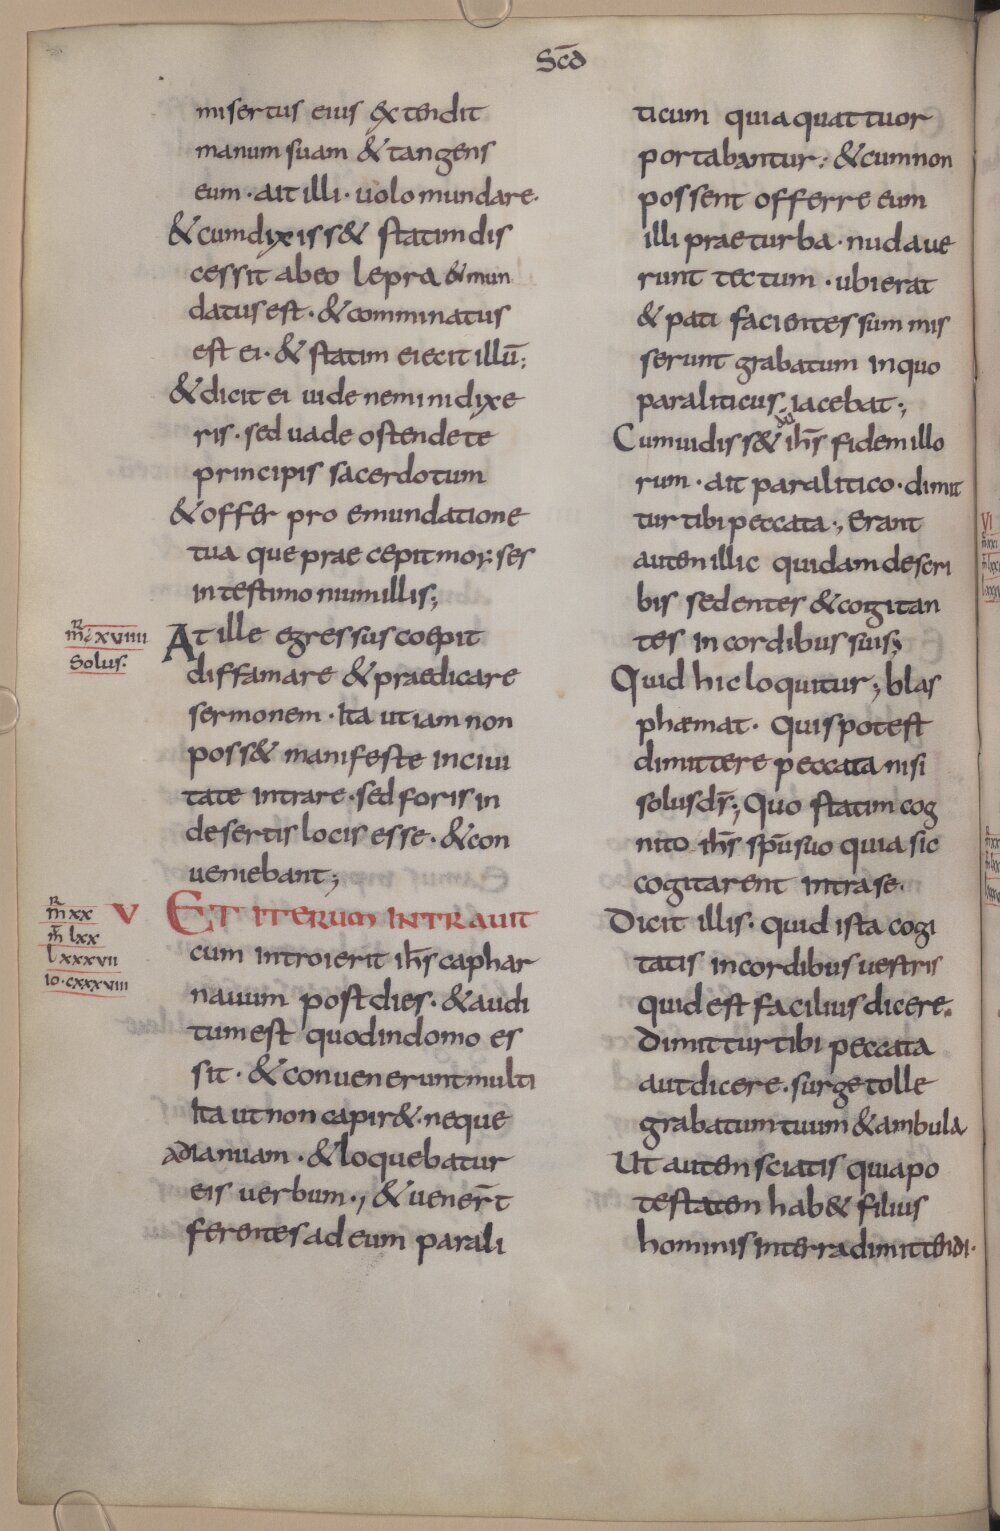 Scd̄
misertus eius extendit
manum suam & tangens
eum · ait illi · uolo mundare·
& cum dixiss& statim dis
cessit ab eo lepra & mun
datus est · & comminatus
est ei · & statim eiecit illū;
& dicit ei uide nemini dixe
ris · sed uade ostende te
principis sacerdotum
& offer pro emundatione
tua que praecepit moyses
in testimonium illis;
m̄c xviiii
Solus·
At ille egressus coepit
diffamare & praedicare
sermonem · Ita ut iam non
poss& manifeste in ciui
tate intrare · sed foris in
desertis locis esse · & con
ueniebant;
R
m̄ xx
m̄ lxx
lxxxvii
io·cxxxviii
V
ET ITERUM INTRAUIT
cum introierit ih̄s caphar
nauum post dies · & audi
tum est quod in domo es
sit · & conuenerunt multi
Ita ut non capir& · neque
ad ianuam · & loquebatur
eis uerbum ·, & uener̄t
ferentes ad eum parali
ticum qui a quattuor
portabantur: & cum non
possent offerre eum
illi prae turba · nudaue
runt tectum · ubi erat
& pati facientes summis
serunt grabatum in quo
paraliticus iacebat·,
Cum uidiss& ih̄s fidem illo
rum · ait paralitico · dimit
tur tibi peccata·, Erant
autem illic quidam de scri
bis sedentes & cogitan
tes in cordibus suis;
Quid hic loquitur; blas
phæmat · Quis potest
dimittere peccata nisi
solus ds̄; Quo statim cog
nito ih̄s spū suo quia sic
cogitarent intra se·
Dicit illis · quid ista cogi
tatis in cordibus uestris
quid est facilius dicere·
Dimittur tibi peccata
aut dicere · surge tolle
grabatum tuum & ambula
Ut autem sciatis quia po
testatem hab& filius
hominis in terra dimittendi·